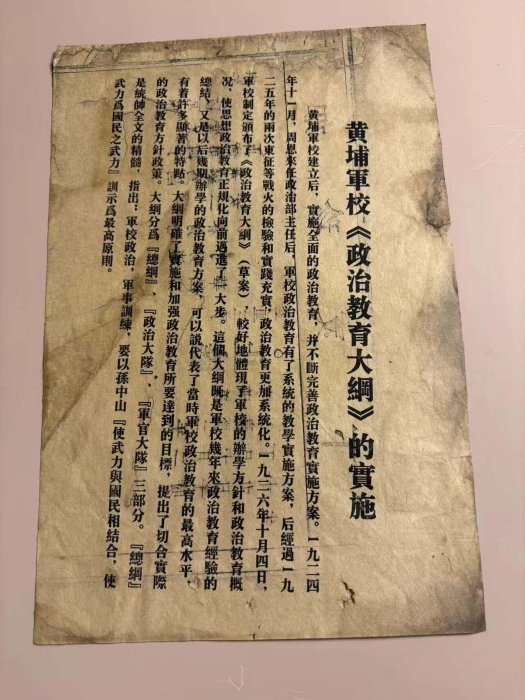 黄埔軍校《政治教育大綱》的實施
黄埔軍校建立后，實施全面的政治教育，并不斷完善政治教育實施方案。一九二四
年十一月，周恩来任政治部主任后，軍校政治教育有了系統的教學實施方案，后經過一九
二五年的兩次東征等戰火的檢驗和實踐充實，政治教育更加系統化。一九二六年十月四日，
軍校制定頒布了《政治教育大綱》（草案），較好地體現了軍校的辦學方針和政治教育概
况，使思想政治教育正規化向前邁進了一大步。這個大綱既是軍校幾年來政治教育經驗的
總結，又是以后幾期辦學的政治教育方案，可以説代表了當時軍校政治教育的最高水平，
有着許多顯著的特點。大綱明確了實施和加强政治教育所要達到的目標，提出了切合實際
的政治教育方針政策。大綱分爲『總綱』、『政治大隊』、『軍官大隊』三部分。『總綱』
是統帥全文的精髓，指出：軍校政治，軍事訓練，要以孫中山『使武力與國民相結合，使
武力爲國民之武力』訓示爲最高原則。